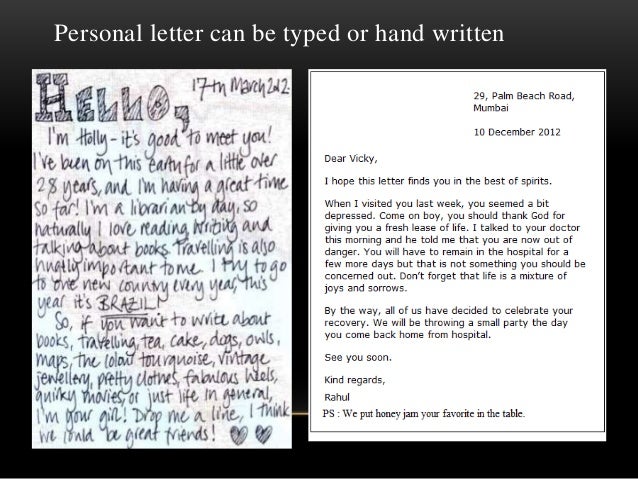 Personal letter can be typed or hand written
17th March 2012.
HELLO,
I'm Holly - it's good to meet you!
I've been on this earth for a little over
28 years, and I'm having a great time
so far! I'm a librarian by day, so
naturally I love reading, writing and
talking about books. Travelling is also
hugely important to me. I try to go
to one new country every year, this
year it's BRAZIL!
So, if you want to write about
books, travelling, tea, cake, dogs, owls,
maps, the colour turquoise, vintage
jewellery, pretty clothes, fabulous heels,
quirky movies, or just life in general,
I'm your girl! Drop me a line, I think
we could be great friends! ♥ ♥
29, Palm Beach Road,
Mumbai
10 December 2012
Dear Vicky,
I hope this letter finds you in the best of spirits.
When I visited you last week, you seemed a bit
depressed. Come on boy, you should thank God for
giving you a fresh lease of life. I talked to your doctor
this morning and he told me that you are now out of
danger. You will have to remain in the hospital for a
few more days but that is not something you should be
concerned out. Don't forget that life is a mixture of
joys and sorrows.
By the way, all of us have decided to celebrate your
recovery. We will be throwing a small party the day
you come back home from hospital.
See you soon.
Kind regards,
Rahul
PS : We put honey jam your favorite in the table.